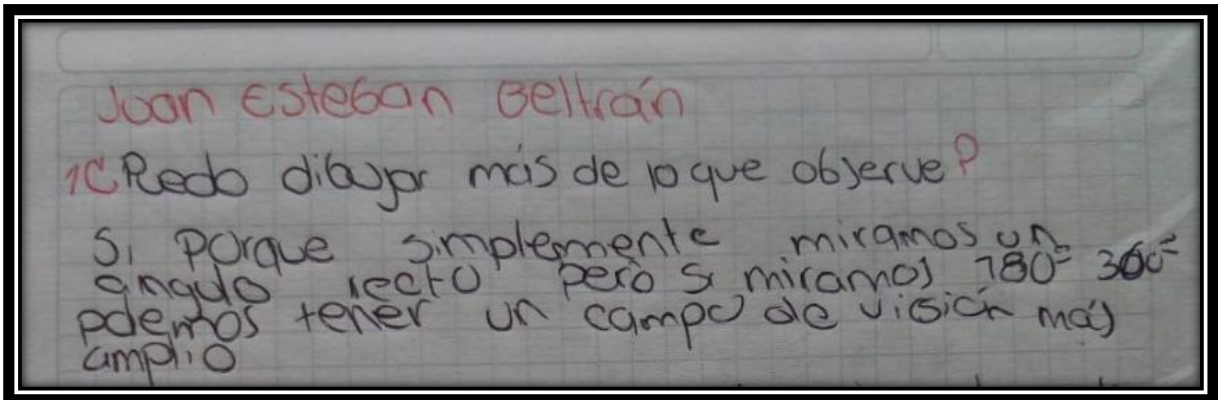 Juan Esteban Beltrán
1¿Puedo dibujar más de lo que observe?
Si porque simplemente miramos un
angulo recto pero si miramos 180º 360º
podemos tener un campo de visión más
amplio